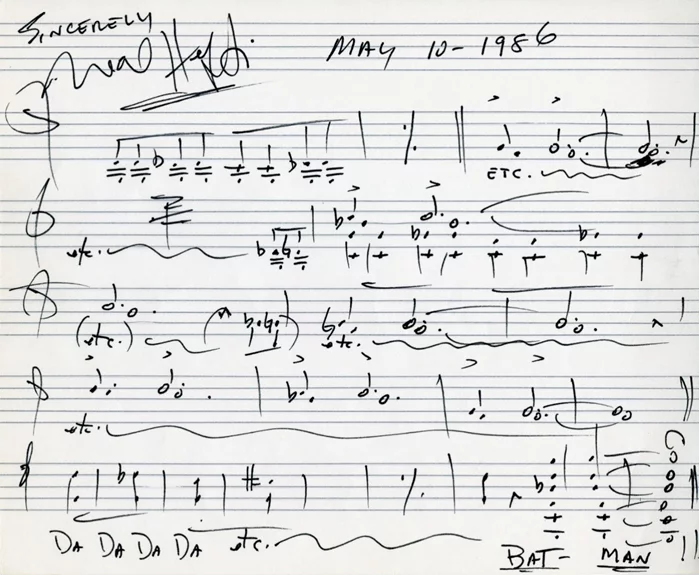 SINCERELY
Neal Hefti.
MAY 10-1986
ETC.
etc.
(etc.)
etc.
etc.
DA DA DA DA etc.
BAT- MAN